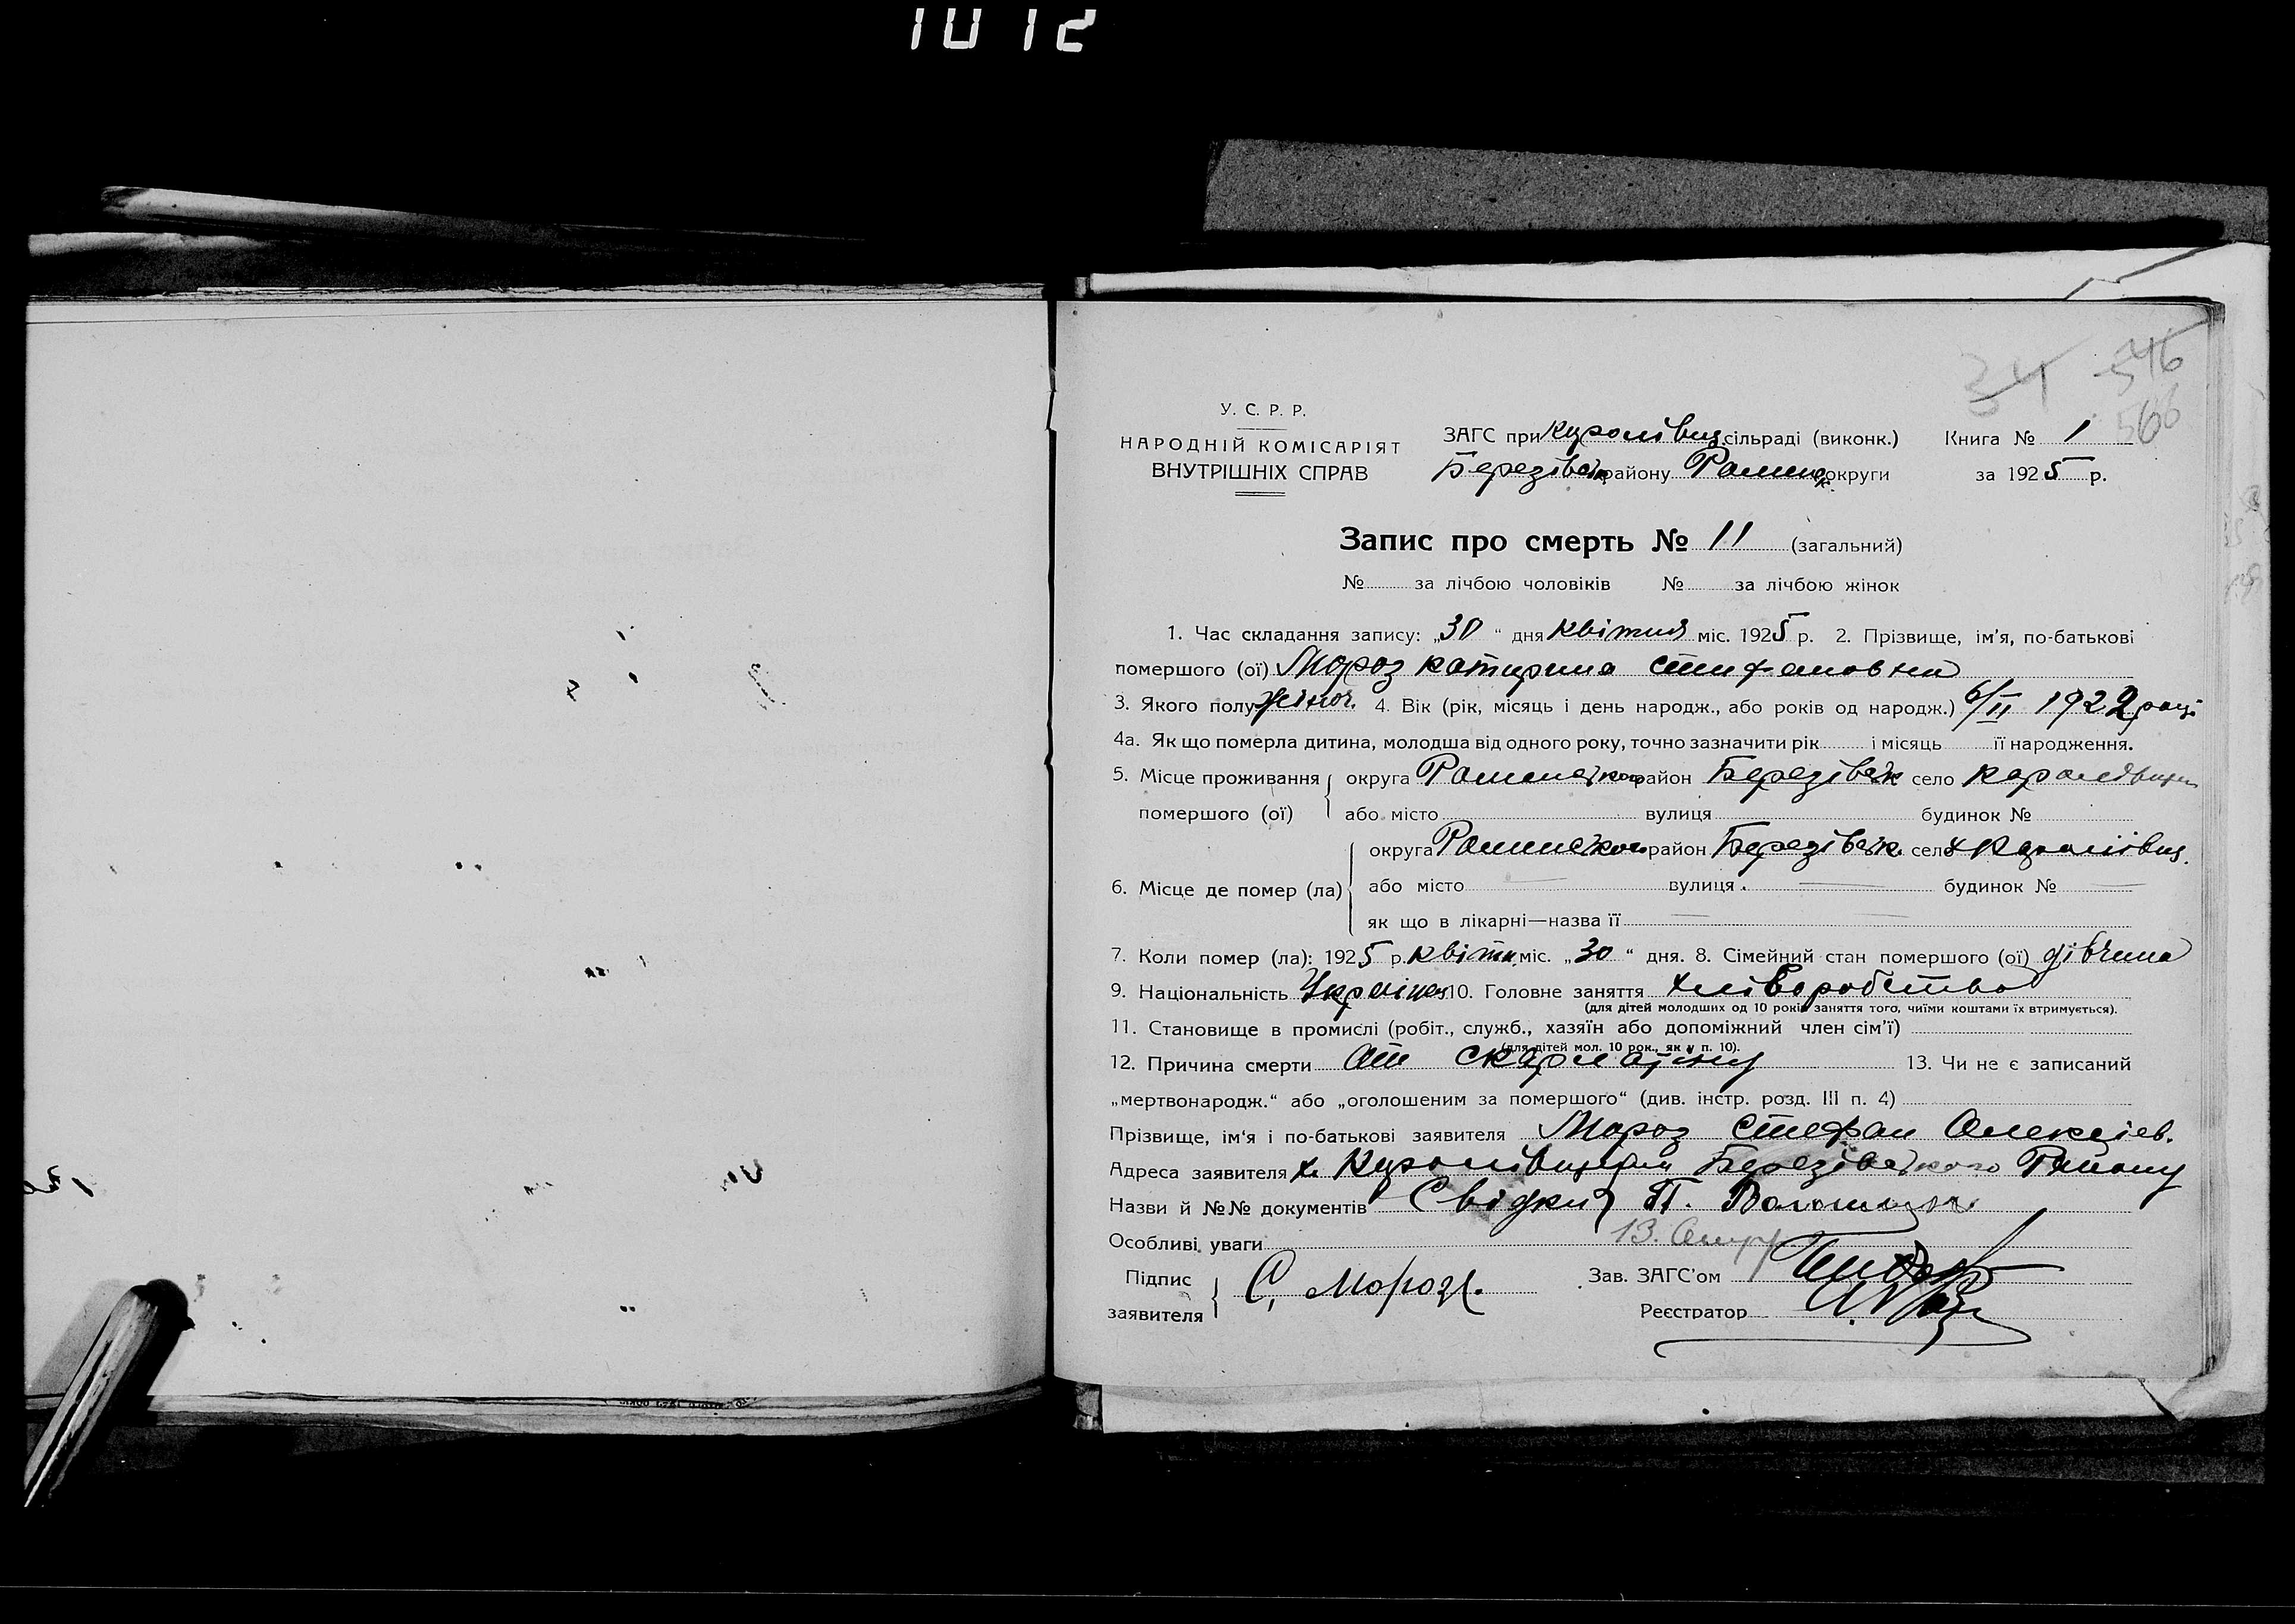 1012
34 546
566
У. С. Р. Р.
НАРОДНІЙ КОМІСАРІЯТ
ВНУТРІШНІХ СПРАВ
ЗАГС при сільраді (виконк.) Книга № 1
Березівськ району Роменск округи за 1925 р.
Запис про смерть № 11 (загальний)
№ за лічбою чоловіків № за лічбою жінок
1. Час складання запису: „30 “ дня квітня міс. 1925 р. 2. Прізвище, ім'я, по-батькові
помершого (ої) Мороз катирина стифановна
3. Якого полу жіноч. 4. Вік (рік, місяць і день народж., або років од народж.) 6/II 1922 році
4а. Як що померла дитина, молодша від одного року, точно зазначити рік і місяць її народження.
5. Місце проживання округа Роменськог район Березівськ село
помершого (ої) або місто вулиця будинок №
округа Роменськог район Березівськ. село
6. Місце де помер (ла) або місто вулиця будинок №
як що в лікарні—назва її
7. Коли помер (ла): 1925 р. квітн. міс. „30 “ дня. 8. Сімейний стан помершого (ої) дівчина
9. Національність 10. Головне заняття хліборобство
(для дітей молодших од 10 років заняття того, чиїми коштами їх втримується).
11. Становище в промислі (робіт., служб., хазяїн або допоміжний член сім'ї)
(для дітей мол. 10 рок., як у п. 10).
12. Причина смерти От скарлатіни 13. Чи не є записаний
„мертвонародж.“ або „оголошеним за помершого“ (див. інстр. розд. III п. 4)
Прізвище, ім'я і по-батькові заявителя Мороз Стефан Олексіев.
Адреса заявителя х. Березівського Району
Назви й №№ документів Свідки П.
Особливі уваги 13.
Підпис
заявителя С. Мороз
Зав. ЗАГС'ом
Реєстратор